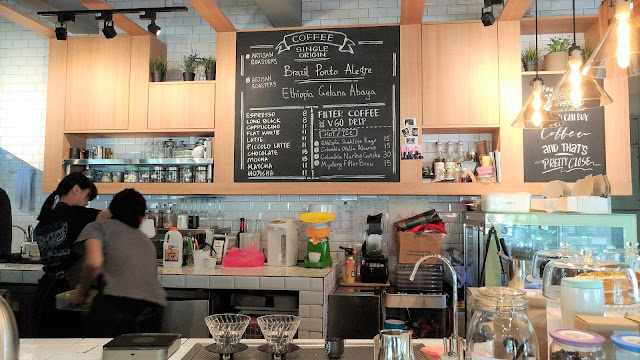 COFFEE
SINGLE ORIGIN
ARTISAN ROASTERS
Brazil Ponto Alegre
ARTISAN ROASTERS
Ethiopia Gelana Abaya
ESPRESSO 8
LONG BLACK
CAPPUCCINO 11
FLAT WHITE 11
LATTE 11
PICCOLO LATTE
CHOCOLATE 15
MOCHA
MATCHA 15
HOJICHA
FILTER COFFEE
V60 DRIP
HOT/ICE
Colombia
15
Colombia
30
Mystery Filter Brew 15
YOU
CAN BUY
Coffee
AND THAT'S
PRETTY CLOSE